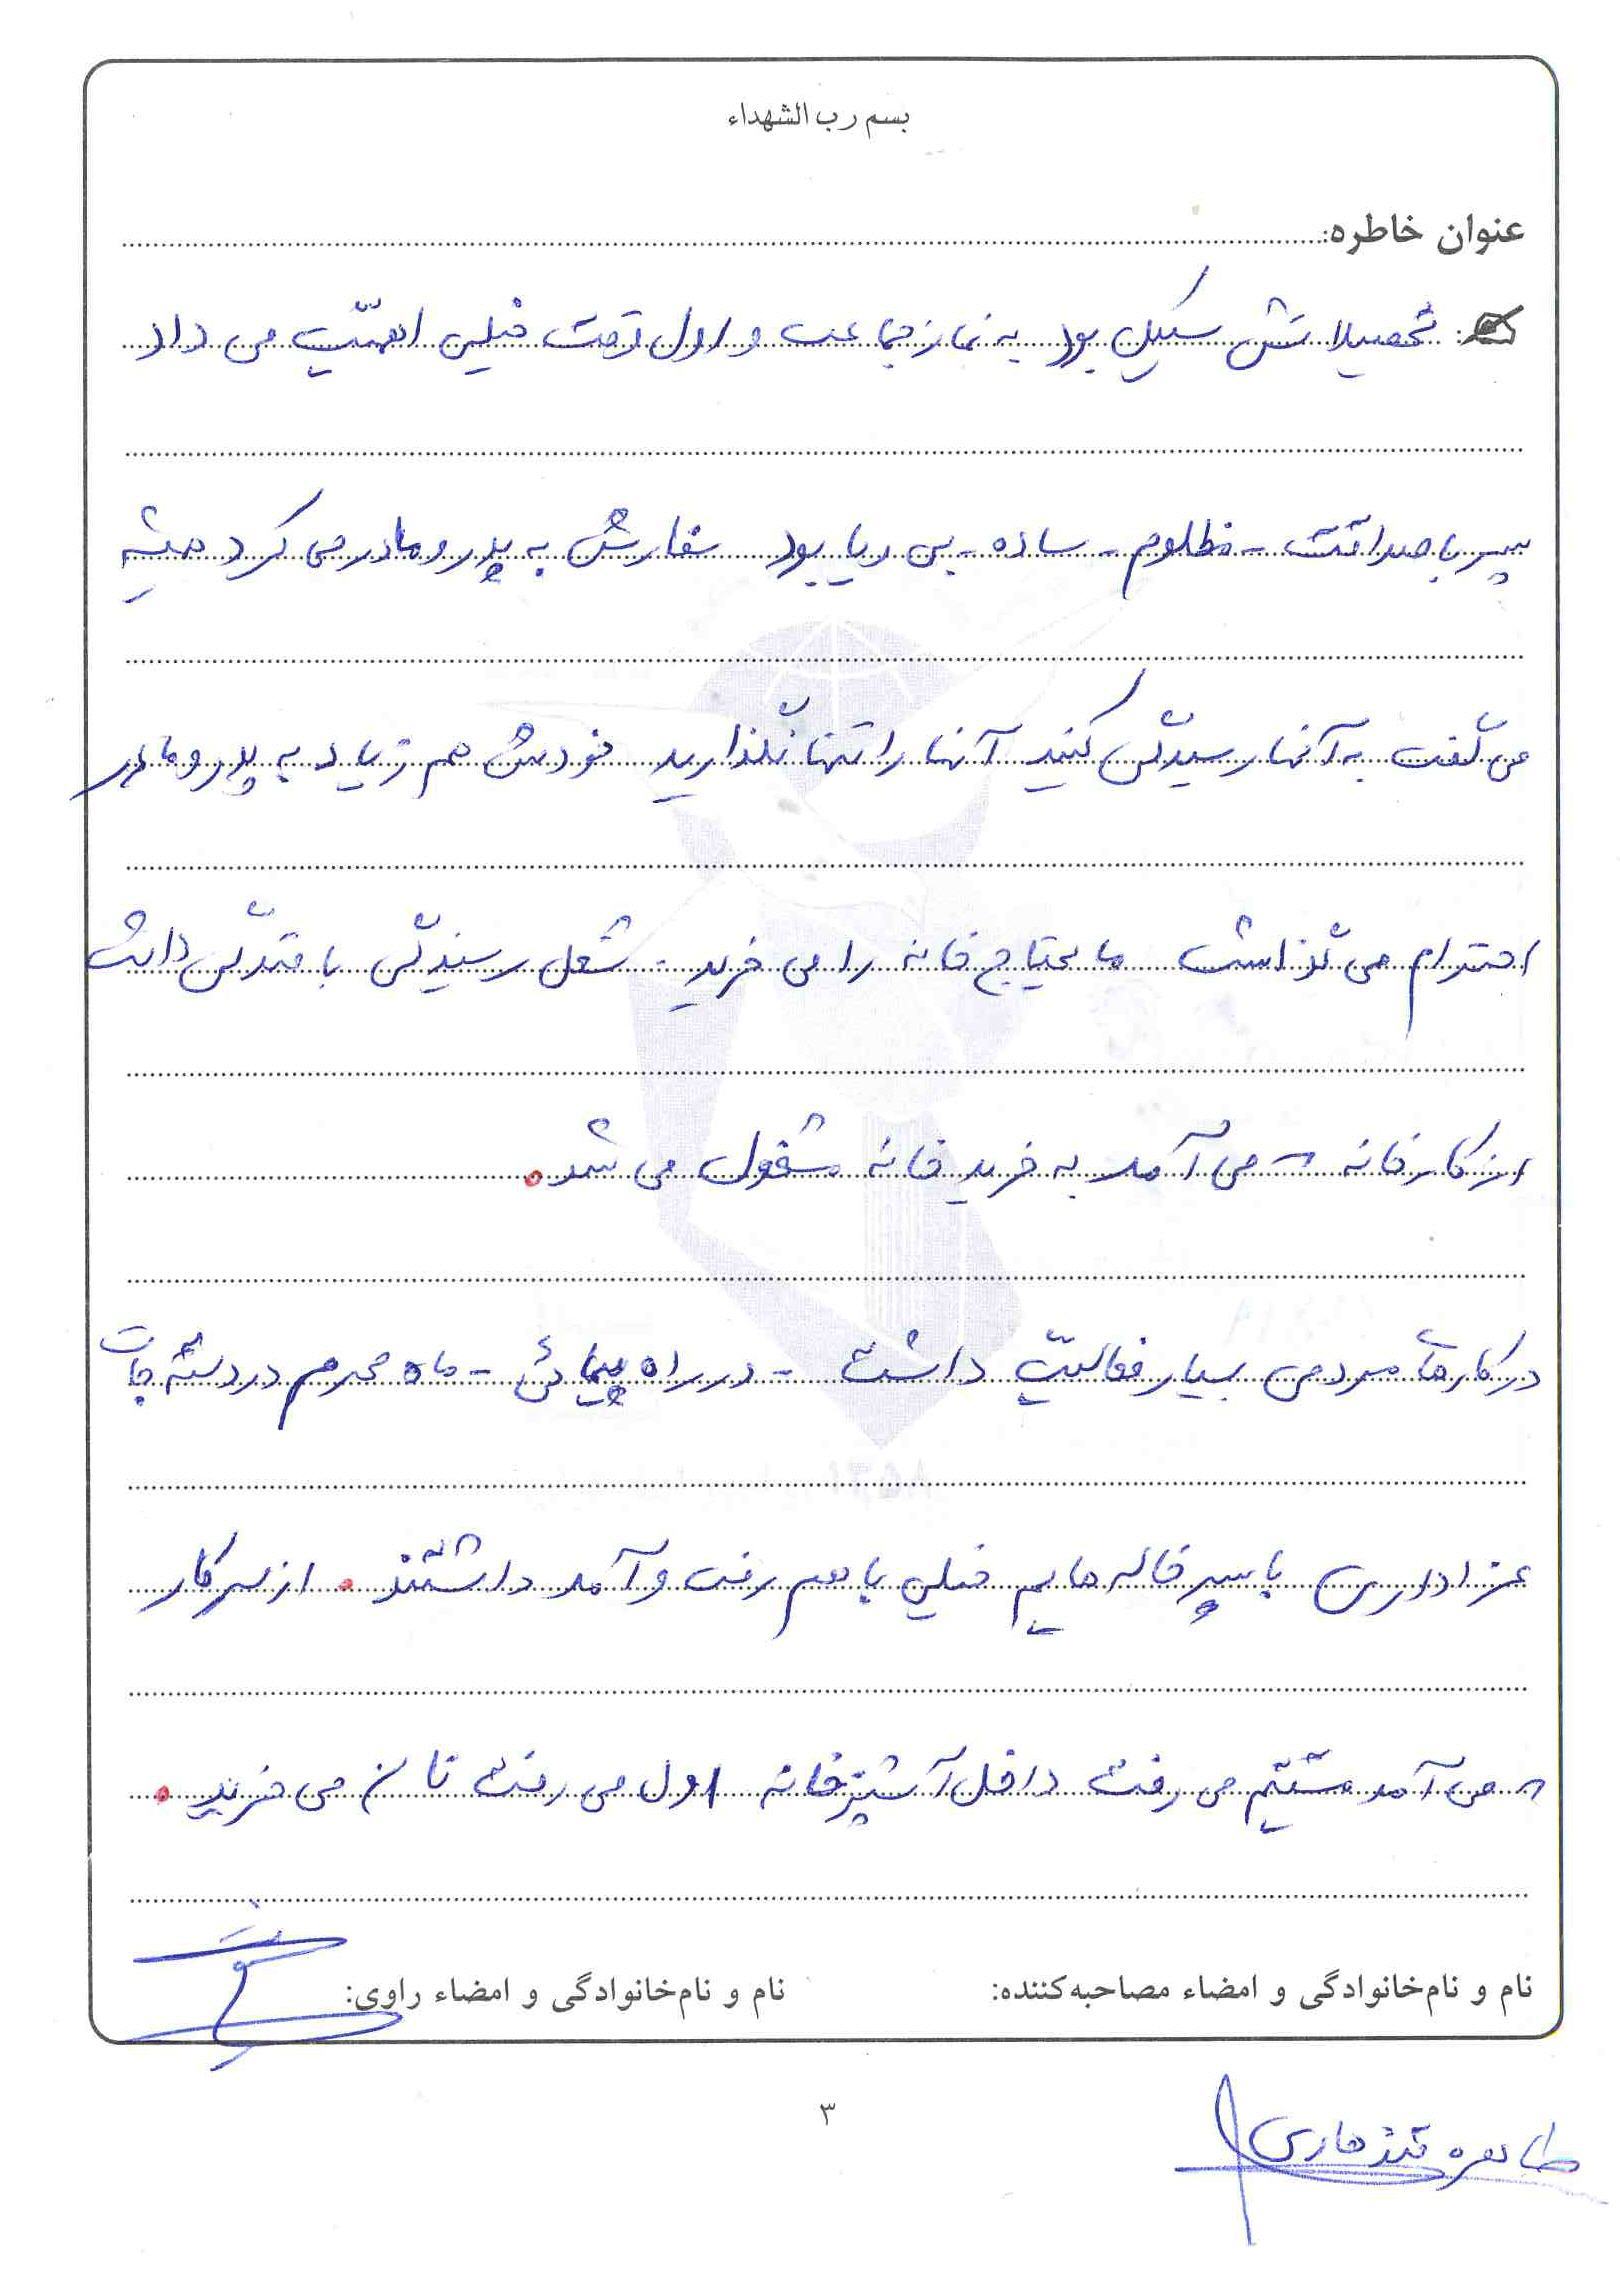 بسم رب الشهداء
عنوان خاطره:
تحصیلاتش سیکل بود به نماز جماعت و اول وقت خیلی اهمیّت می داد
پسر با صداقت - مظلوم - ساده - بی ریا بود سفارش به پدر و مادر می کرد همیشه
می گفت به آنها رسیدگی کنید آنها را تنها نگذارید خودش هم زیاد به پدر و مادر
احترام می گذاشت مایحتاج خانه را می خرید. شغل ریسندگی بافندگی داشت
از کارخانه می آمد به خرید خانه مشغول می شد.
در کارهای مردمی بسیار فعالیّت داشت - در راه پیمائی - ماه محرم در دسته جات
عزاداری با پسر خاله هایم خیلی با هم رفت و آمد داشتند. از سر کار
می آمد مستقیم می رفت داخل آشپزخانه اول می رفت نان می خرید.
نام و نام‌خانوادگی و امضاء مصاحبه‌کننده: نام و نام‌خانوادگی و امضاء راوی:
۳
طاهره قندهاری